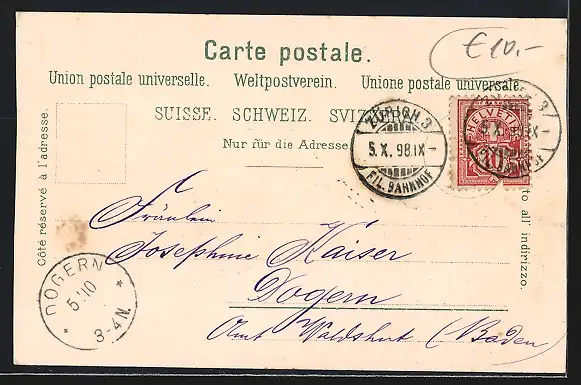 €10.-
Carte postale.
Union postale universelle. Weltpostverein. Unione postale universale.
SUISSE. SCHWEIZ. SVIZ
Nur für die Adresse
Côté réservé à l'adresse.
to all' indirizzo.
ZÜRICH 3
5.X.98.IX-
FIL. BAHNHOF
HELVETIA
10
3
5.X.98.IX-
Fräulein
Josephine Kaiser
Dogern
Amt Waldshut (Baden
DOGERN
5.10
3-4N.